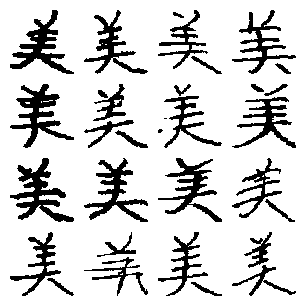 美美美美
美美美美
美美美美
美美美美